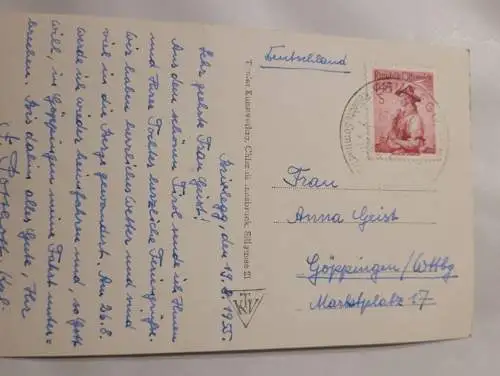 Brixlegg, den 19.8.1955.
Sehr geehrte Frau Geist!
Aus dem schönen Tirol sende ich Ihnen
und Ihrer Tochter herzliche Feriengrüße.
Wir haben herrliches Wetter und sind
viel in die Berge gewandert. Am 26.8.
werde ich wieder heimfahren und, so Gott
will, in Göppingen meine Fahrt unter=
brechen. Bis dahin alles Gute, Ihr
Tiroler Kunstverlag Chizzali, Innsbruck, Sillgasse 21
Deutschland
Frau
Anna Geist
Göppingen/Wttbg
Marktplatz 17